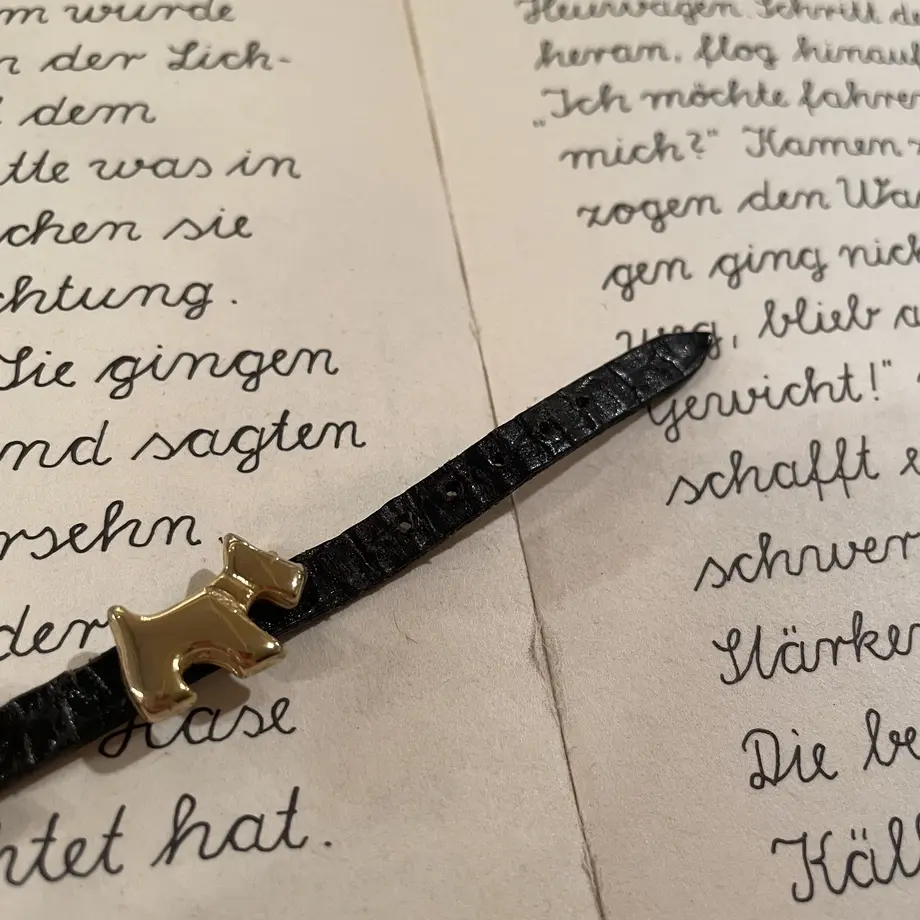 m wurde
n der Lich-
dem
tte was in
chen sie
chtung.
Sie gingen
nd sagten
rsehn.
der
Hase
htet hat.
Heuwagen. Schritt de
heran, flog hinauf
"Ich möchte fahren
mich?" Kamen
zogen den Wa
gen ging nich
weg, blieb a
Gewicht!"
schafft e
schwer
Stärker
Die be
Käl